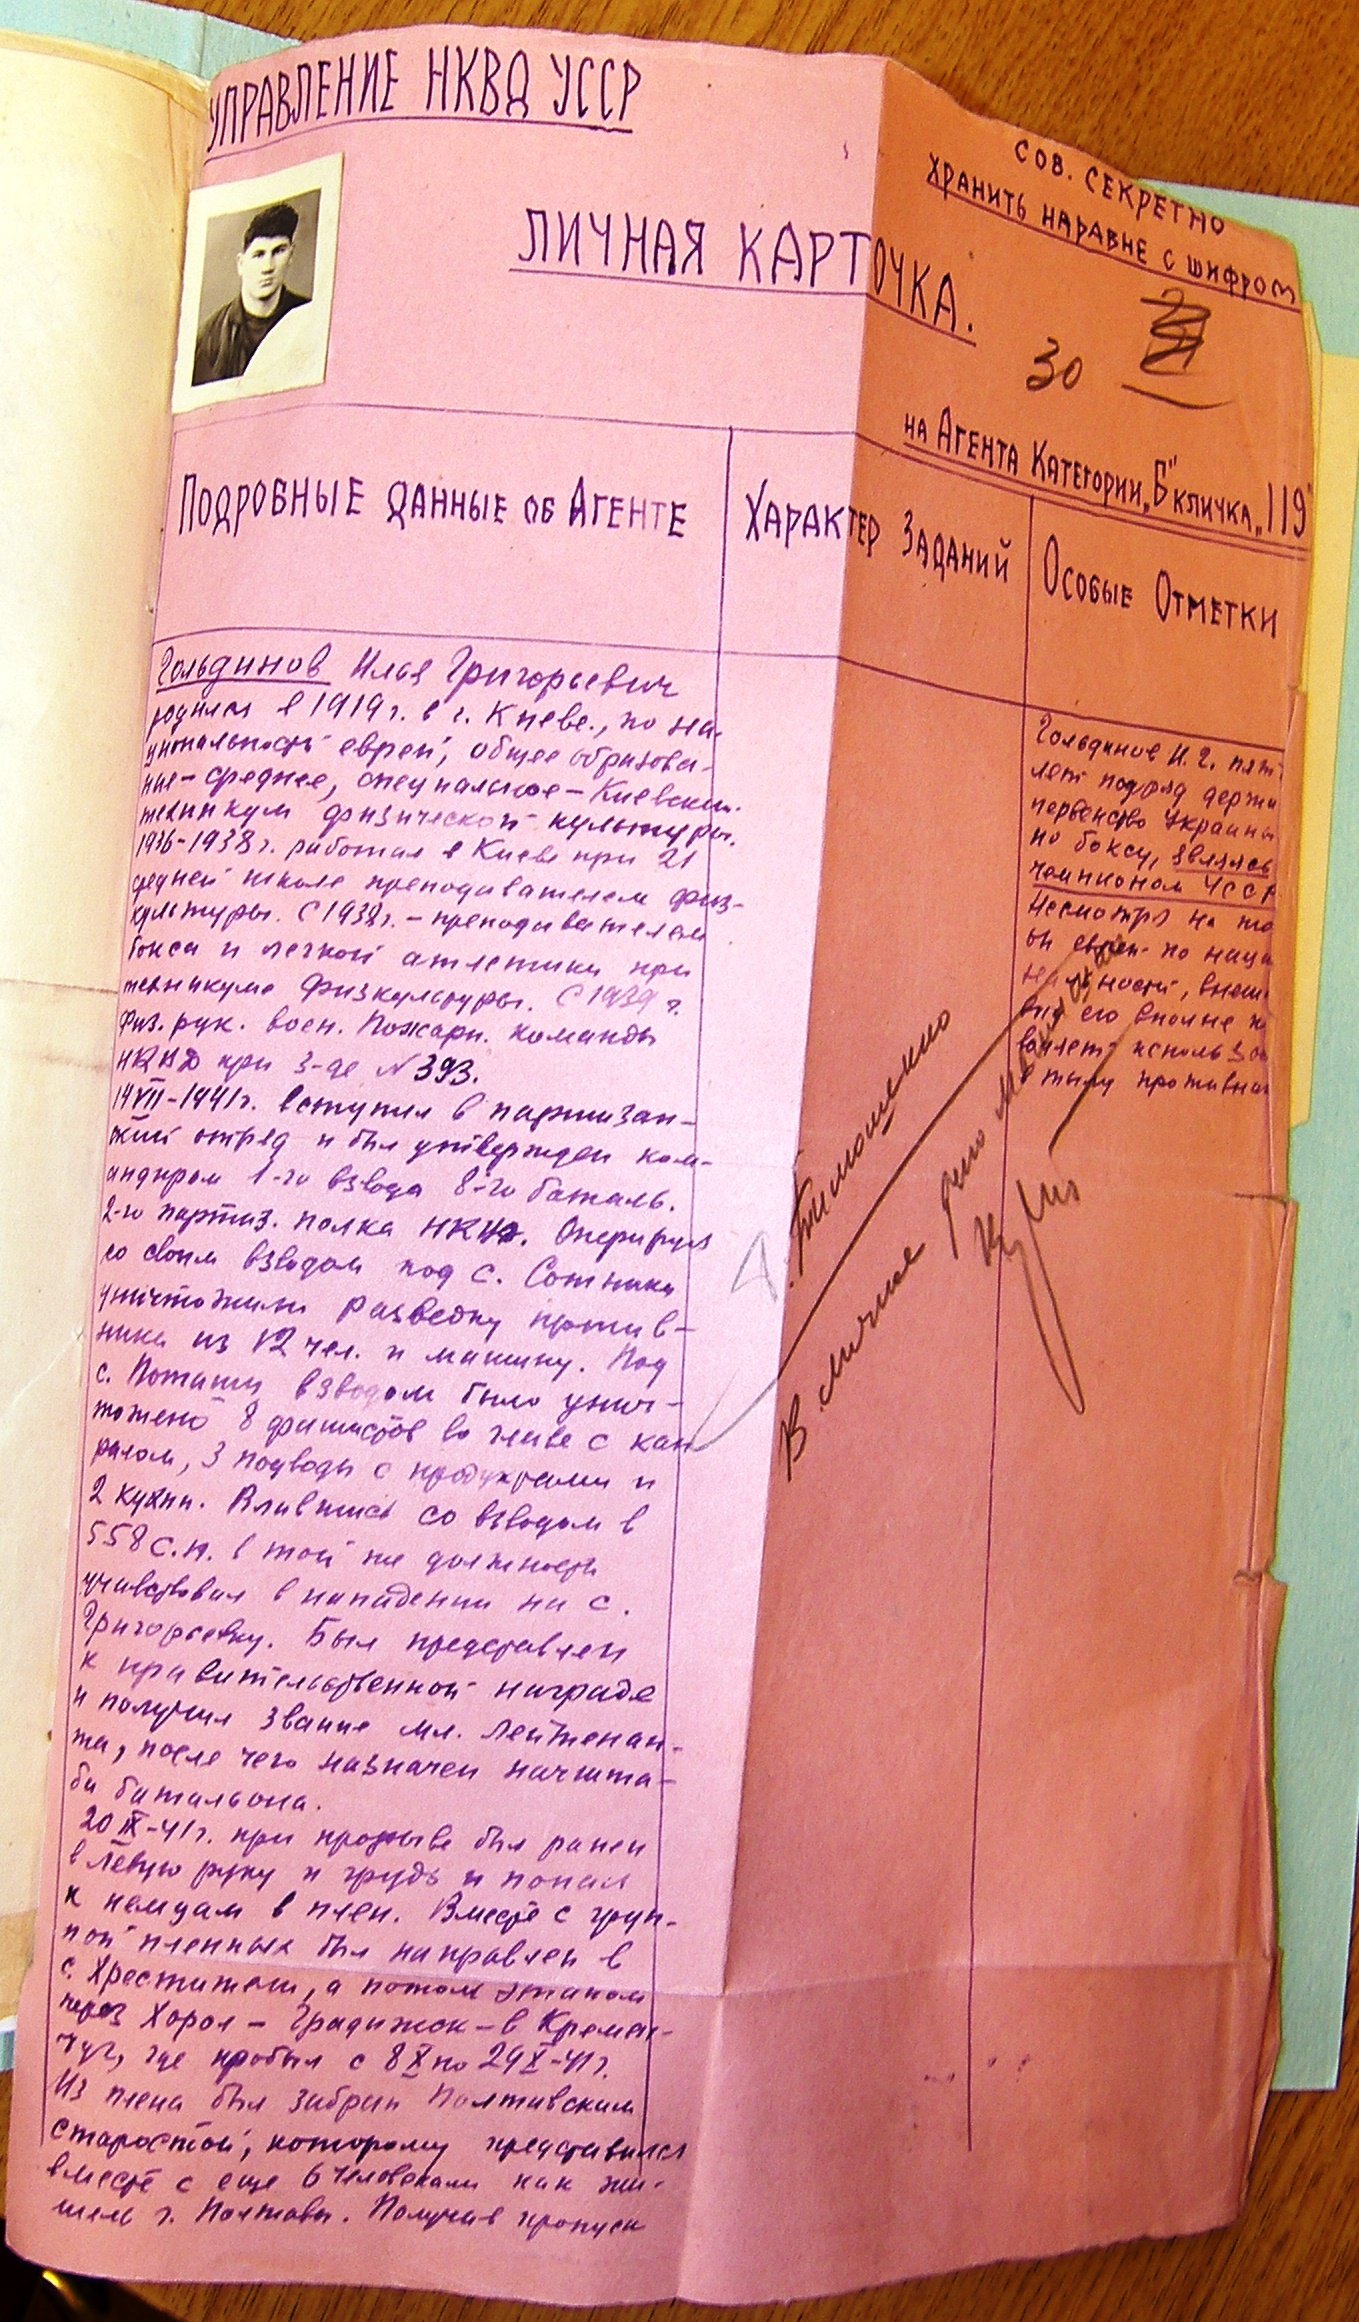 УПРАВЛЕНИЕ НКВД УССР
СОВ. СЕКРЕТНО
ХРАНИТЬ НАРАВНЕ С ШИФРОМ
ЛИЧНАЯ КАРТОЧКА.
30
НА АГЕНТА КАТЕГОРИИ „Б" КЛИЧКА „119"
ПОДРОБНЫЕ ДАННЫЕ ОБ АГЕНТЕ
ХАРАКТЕР ЗАДАНИЙ
ОСОБЫЕ ОТМЕТКИ
Гольдинов Илья Григорьевич
родился в 1919 г. в г. Киеве., по на-
циональности еврей, общее образова-
ние - среднее, специальное - Киевский
техникум физической культуры.
1936-1938 г. работал в Киеве при 21
средней школе преподавателем физ-
культуры. С 1938 г. - преподавателем
бокса и легкой атлетики при
техникуме физкультуры. С 1939 г.
физ. рук. воен. Пожарн. команды
НКВД при з-де N 393.
14 VII-1941 г. вступил в партизан-
ский отряд и был утвержден ком-
андиром 1-го взвода 8-го баталь.
2-го партиз. полка НКВД. Оперируя
со своим взводом под с. Сотники
уничтожили разведку против-
ника из 12 чел. и машину. Под
с. Поташи взводом было унич-
тожено 8 фашистов во главе с кап
ралом, 3 подводы с продуктами и
2 кухни. Влившись со взводом в
558 с.п. в той же должности
участвовал в нападении на с.
Григорьевку. Был представлен
к правительственной награде
и получил звание мл. лейтенан-
та, после чего назначен начшта-
ба батальона.
20 IX-41 г. при прорыве был ранен
в левую руку и грудь и попал
к немцам в плен. Вместе с груп-
пой пленных был направлен в
с. Хрестители, а потом этапом
через Хорол - Градижск - в Кремен-
чуг, где пробыл с 8 X по 29 X-41 г.
Из плена был забран Полтавским
старостой, которому представился
вместе с еще 6 человеками как жи-
тель г. Полтавы. Получив пропуск
Гольдинов И. Г. пять
лет подряд держа
первенство Украины
по боксу, являясь
чемпионом УССР
Несмотря на то
он еврей по наци
нальности, внеш
вид его вполне п
воляет использова
в тылу противни
т. Тимошенко
В личное дело